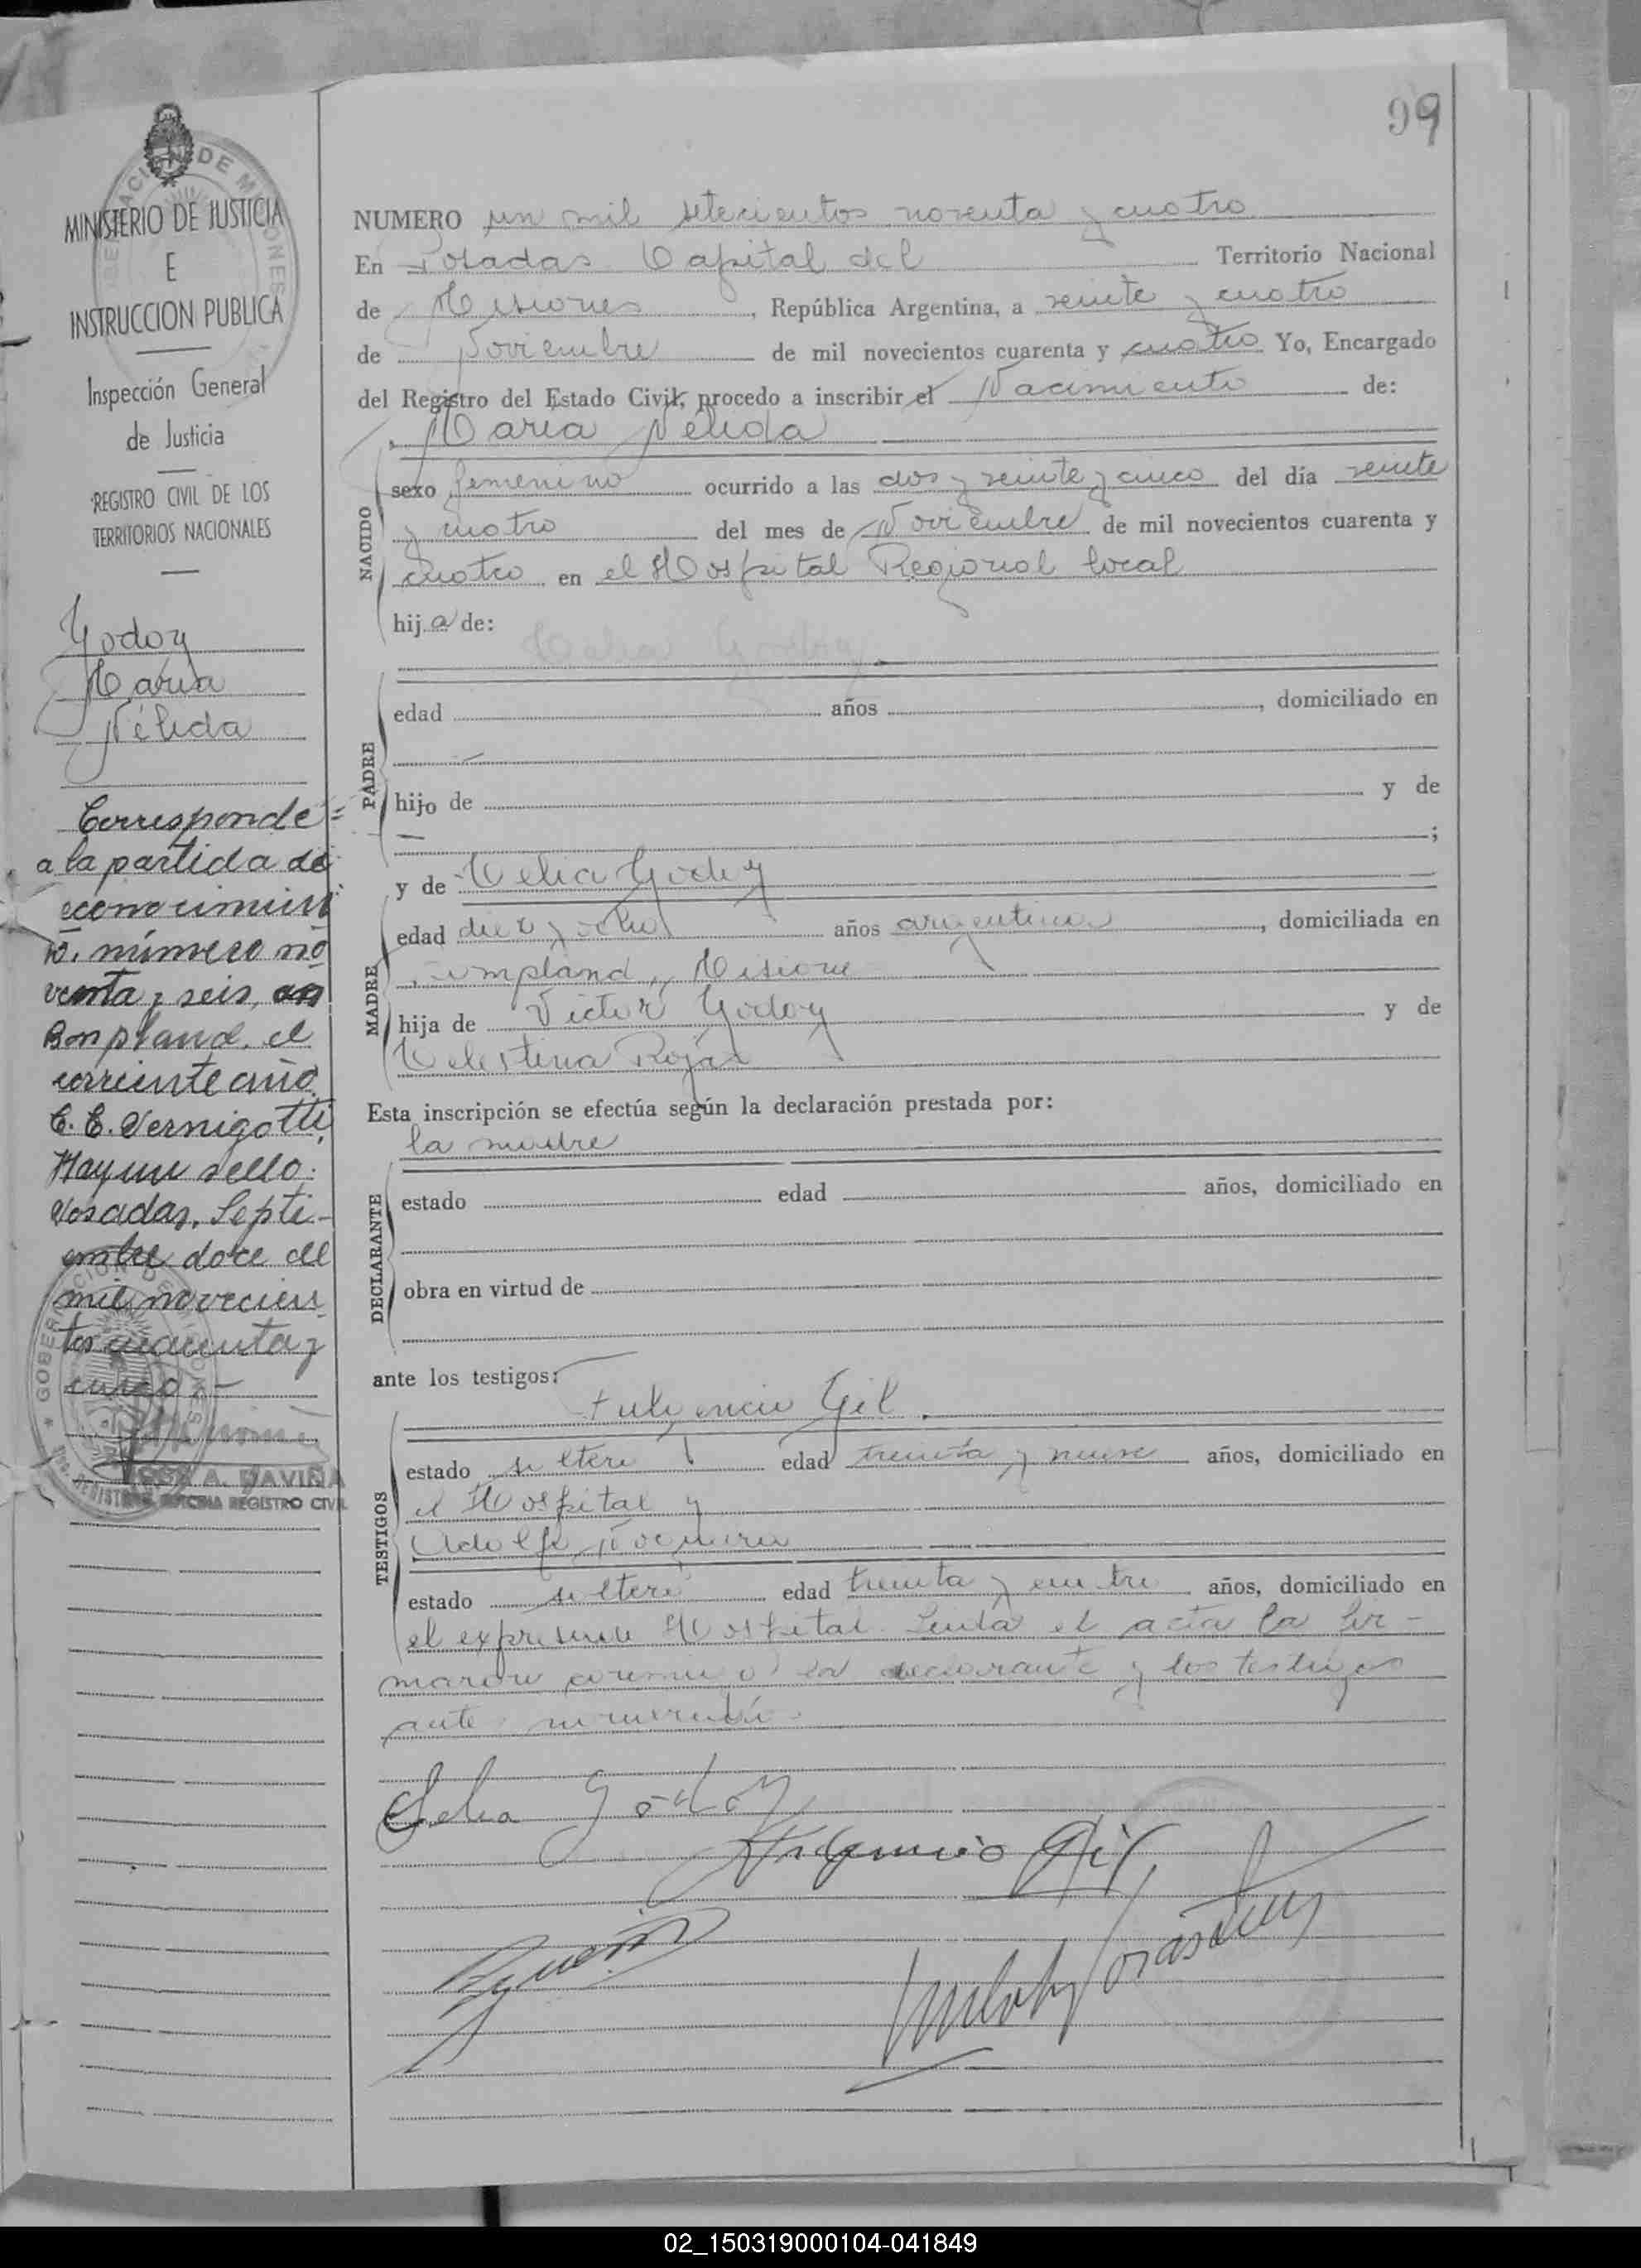 99
MINISTERIO DE JUSTICIA
E
INSTRUCCION PUBLICA
Inspección General
de Justicia
REGISTRO CIVIL DE LOS
TERRITORIOS NACIONALES
Godoy
María
Nélida
Corresponde
a la partida de
reconocimien
to. número no
venta y seis, en
Bonpland, el
corriente año.
C. C. Vernigotti.
Hay un sello.
Posadas, Septi-
embre doce de
mil novecien
tos cuarenta y
cinco.-
GOBERNACION DE MISIONES
A. DAVIÑA
OFICINA REGISTRO CIVIL
NUMERO un mil setecientos noventa y cuatro
En Posadas Capital del Territorio Nacional
de Misiones, República Argentina, a veinte y cuatro
de Noviembre de mil novecientos cuarenta y cuatro Yo, Encargado
del Registro del Estado Civil, procedo a inscribir el Nacimiento de:
María Nélida
NACIDO
sexo femenino ocurrido a las dos y veinte y cinco del día veinte
y cuatro del mes de Noviembre de mil novecientos cuarenta y
cuatro en el Hospital Regional local
hija de:
PADRE
edad años , domiciliado en
hijo de y de
;
y de Celia Godoy
MADRE
edad diez y ocho años argentina, domiciliada en
Bompland, Misiones
hija de Victor Godoy y de
Celestina Rojas
Esta inscripción se efectúa según la declaración prestada por:
la madre
DECLARANTE
estado edad años, domiciliado en
obra en virtud de
ante los testigos:
Fulgencio Gil.
TESTIGOS
estado soltero edad treinta y nueve años, domiciliado en
el Hospital y
Adolfo Noguera
estado soltero edad treinta y cuatro años, domiciliado en
el expresado Hospital. Leida el acta la fir-
maron conmigo la declarante y los testigos
ante
Celia Godoy
Fulgencio Gil
02_150319000104-041849